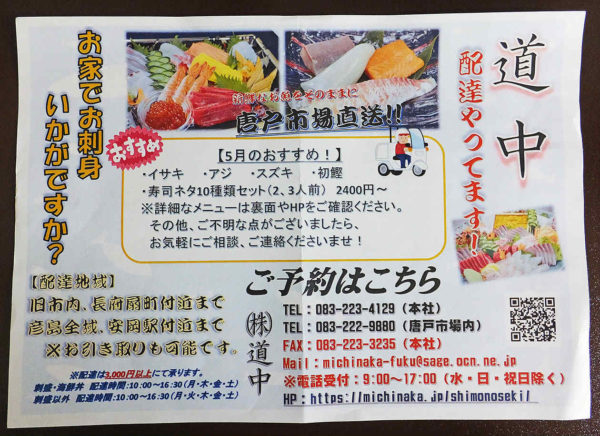 道中
配達やってます！
新鮮なお魚をそのままに
唐戸市場直送!!
お家でお刺身
いかがですか？
おすすめ
【5月のおすすめ！】
・イサキ　・アジ　・スズキ　・初鰹
・寿司ネタ10種類セット(2、3人前)　2400円～
※詳細なメニューは裏面やHPをご確認ください。
その他、ご不明な点がございましたら、
お気軽にご相談、ご連絡くださいませ！
【配達地域】
旧市内、長府扇町付近まで
彦島全域、安岡駅付近まで
※お引き取りも可能です。
※配達は3,000円以上にて承ります。
刺盛・海鮮丼　配達時間：10:00～16:30(月・木・金・土)
刺盛以外　配達時間：10:00～16:30(月・火・木・金・土)
ご予約はこちら
㈱道中
TEL：083-223-4129（本社）
TEL：083-222-9880（唐戸市場内）
FAX：083-223-3235（本社）
Mail：michinaka-fuku@sage.ocn.ne.jp
※電話受付：9:00～17:00（水・日・祝日除く）
HP：https://michinaka.jp/shimonoseki/